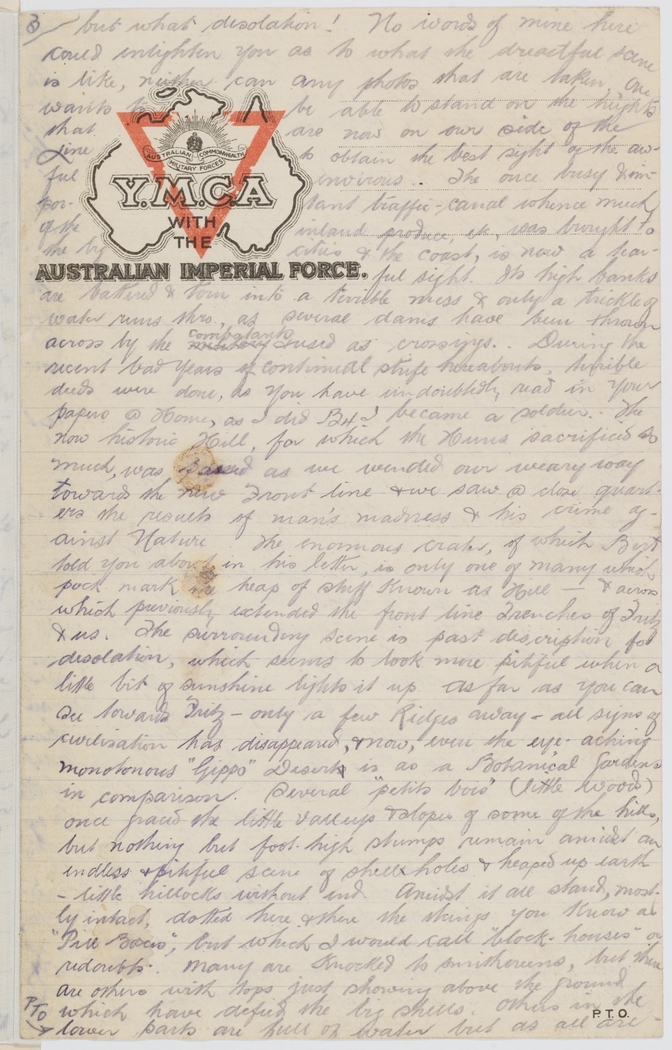 3/ but what disolation! No words of mine here
could enlighten you as to what the dreadful scene
is like, neither can any photos that are taken, One
wants to be able to stand on the heights
that are now on our side of the
Line to obtain the best sight of the aw-
ful environs.. The once busy & im-
por- tant traffic-canal whence much
of the inland produce, etc, was brought to
the big cities & the coast, is now a fear-
ful sight. Its high banks
AUSTRALIAN COMMONWEALTH
MILITARY FORCES
Y.M.C.A
WITH
THE
AUSTRALIAN IMPERIAL FORCE.
are battered & torn into a terrible mess & only a trickle of
water runs thro., as several dams have been thrown
across by the combatants & used as crossings.. During the
recent bad years of continual strife hereabouts, terrible
deeds were done, as you have undoubtedly read in your
papers @ Home, as I did B4 I became a soldier. The
now historic Hill, for which the Huns sacrificed so
much, was as we wended our weary way
toward the new Front line & we saw @ close quart-
ers the results of man's madness & his crime ag-
ainst Nature The enormous crater, of which Bert
told you about in his letter, is only one of many which
pock mark the heap of stuff Known as Hill — & across
which previously extended the front line Trenches of Fritz
& us. The surrounding scene is past description for
disolation, which seems to look more pitiful when a
little bit of sunshine lights it up. As far as you can
see toward Fritz – only a few Ridges away – all signs of
civilisation has disappeared, & now, even the eye-aching
monotonous "Gippo" Desert is as a Botanical Gardens
in comparison. Several "petits bois" (little woods)
once graced the little valleys & slopes of some of the hills,
but nothing but foot-high stumps remain amidst an
endless & pitiful scene of shell holes & heaped up earth
– little hillocks without end. Amidst it all stand, most-
ly intact, dotted here & there the things you Know as
"Pill Boxes", but which I would call "block-houses" or
redoubts. Many are Knocked to smithereens, but there
are others with tops just showing above the ground
which have defied the big shells. Others in the
lower parts are full of water but as all are
PTO
P.T.O.